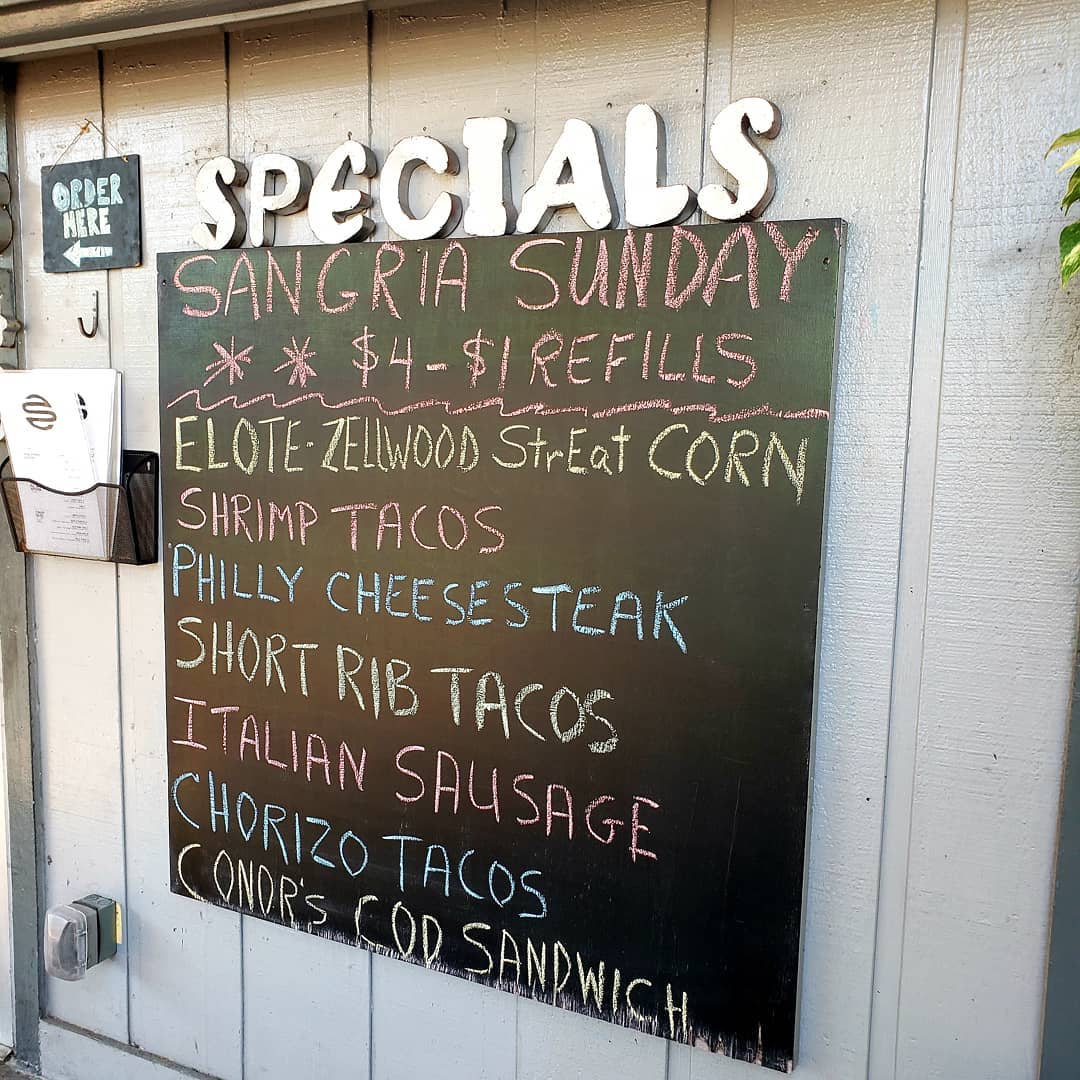 SPECIALS
ORDER
HERE
SANGRIA SUNDAY
** $4-$1 REFILLS
ELOTE-ZELLWOOD StrEat CORN
SHRIMP TACOS
PHILLY CHEESESTEAK
SHORT RIB TACOS
ITALIAN SAUSAGE
CHORIZO TACOS
CONOR'S COD SANDWICH